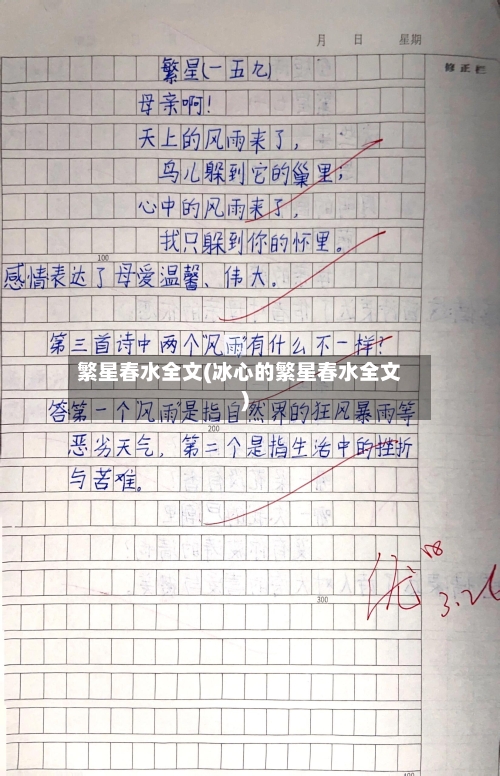 月 日 星期
修正栏
繁星(一五九)
母亲啊!
天上的风雨来了,
鸟儿躲到它的巢里;
心中的风雨来了,
我只躲到你的怀里。
100
感情表达了母爱温馨、伟大。
第三首诗中两个"风雨"有什么不一样?
繁星春水全文(冰心的繁星春水全文
)
答第一个"风雨"是指自然界的狂风暴雨等
200
恶劣天气,第二个是指生活中的挫折
与苦难。
300
优
3.26
400